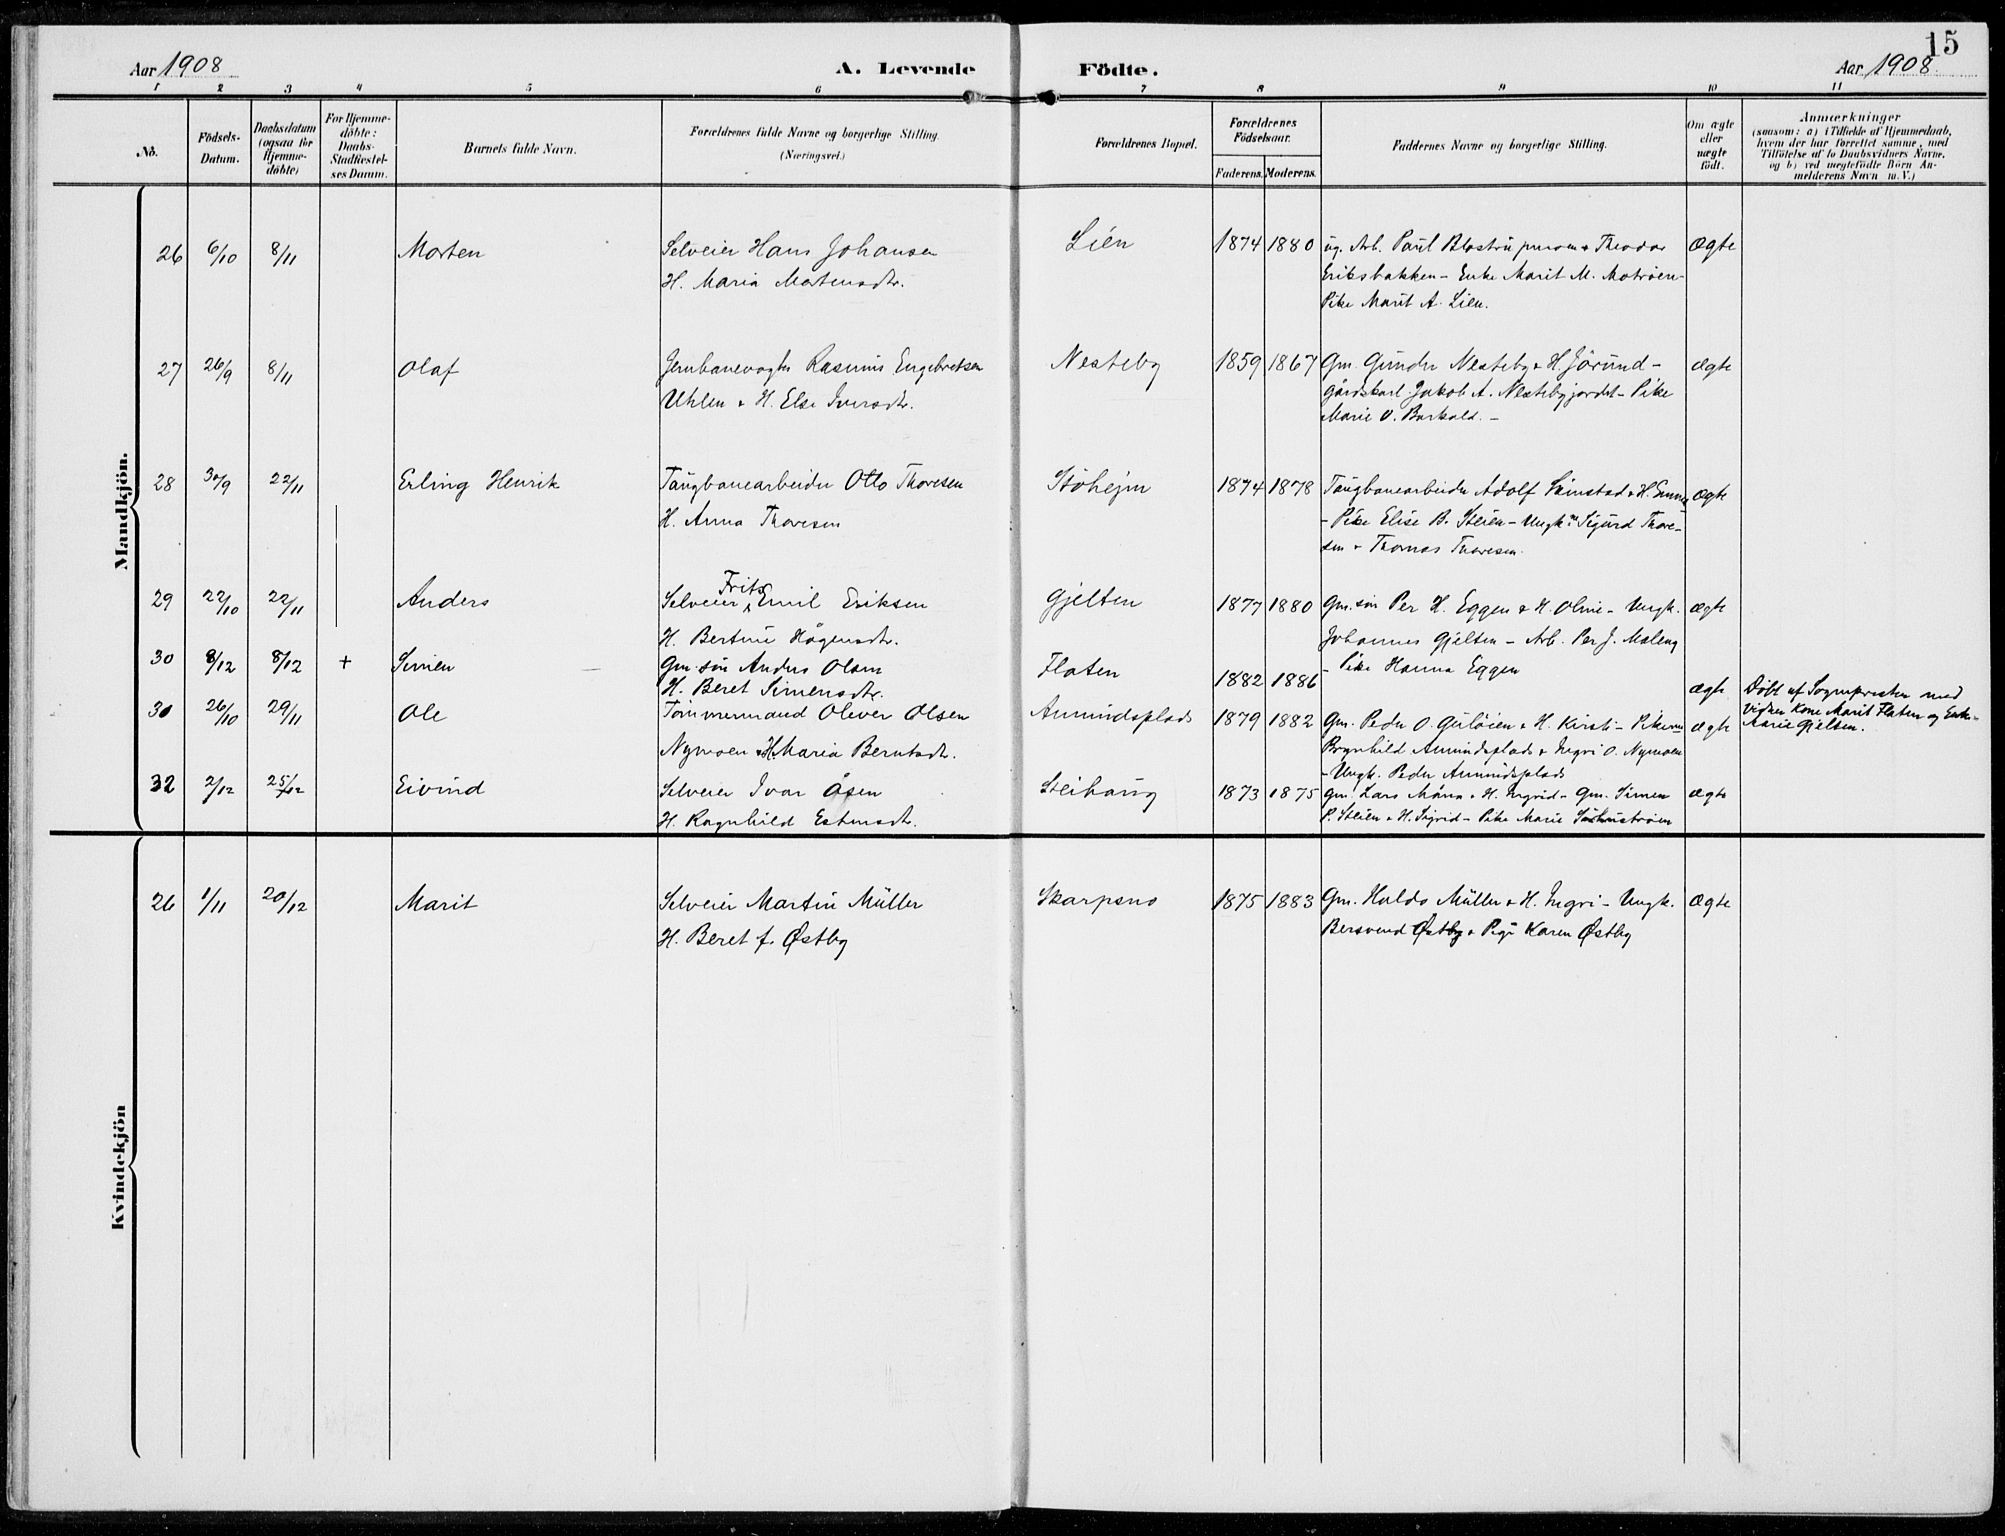 15
Aar 1908
A. Levende Födte.
Aar 1908
1 2 3 4 5 6 7 8 9 10 11
No.
Födsels-Datum.
Daabsdatum (ogsaa for Hjemme-döbte)
For Hjemme-döbte: Daabs-Stadfæstel-ses Datum.
Barnets fulde Navn.
Forældrenes fulde Navne og borgerlige Stilling.
(Næringsvei.)
Forældrenes Bopæl.
Forældrenes Födselsaar.
Faderens. Moderens.
Faddernes Navne og borgerlige Stilling.
Om ægte eller uægte født.
Anmærkninger
(saasom: a) i Tilfælde af Hjemmedaab,
hvem der har forrettet samme, med
Tilföielse af to Daabsvidners Navne,
og b) ved uægtefödte Börn An-
melderens Navn m. V.)
Mandkjön.
26 6/10 8/11 Morten Selveier Hans Johansen Lien 1874 1880 ug. Arb. Paul Theodor ægte
H. Maria Mortensdtr. Eriksbakken - Enke Marit M. Motrøen-
Pike Marit A. Lien.
27 26/9 8/11 Olaf Jernbanevogter Rasmus Engebretsen Nesteby 1859 1867 Gm. Gunder Nesteby & H. Jörund - ægte
Uhlen & H. Else Iversdtr. gårdskarl Jakob A. Nestebyjordet - Pike
Marie O. Barkald. -
28 30/9 22/11 Erling Henrik Taugbanearbeider Otto Thoresen Stöhejm 1874 1878 Taugbanearbeider Adolf & H. Emma ægte
H. Anna Thoresen - Pike Elise B. Steien - Ungk. Sigurd Thore-
sen & Thomas Thoresen.
29 22/10 22/11 Anders Selveier Frits Emil Eriksen Gjelten 1877 1880 Gm. sön Per H. Eggen & H. Oline - Ungk. ægte
H. Bertine Hågensdtr. Johannes Gjelten - Arb. Per J. Maleng
- Pike Hanna Eggen
30 8/12 8/12 + Simen Gm. sön Anders Olsen Flaten 1882 1886 ægte Døbt af Sognepresten med
H. Beret Simensdtr. Vidner Kone Marit Flaten og Enke
Marie Gjelten.
30 26/10 29/11 Ole Tömmermand Oliver Olsen Amundsplads 1879 1882 Gm. Peder O. Gulöien & H. Kirsti - Pikerne ægte
Nymoen & H. Maria Berntsdtr. Brynhild Amundsplads & Ingri O. Nymoen
- Ungk. Peder Amundsplads
32 2/12 25/12 Eivind Selveier Ivar Åsen Steihaug 1873 1875 Gm. Lars & H. Ingrid - Gm. Simen ægte
H. Ragnhild Estensdtr. P. Steien & H. Sigrid - Pike Marie
Kvindekjön
26 1/11 20/12 Marit Selveier Martin Müller Skarpsno 1875 1883 Gm. Haldo Müller & H. Ingri - Ungk. ægte
H. Beret f. Østby Bersvend Østby & Pige Karen Østby